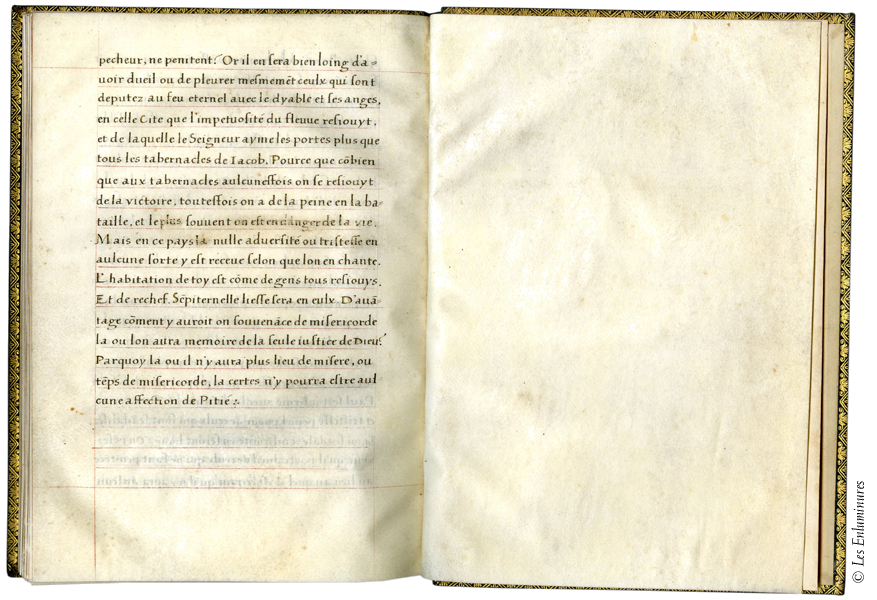 pecheur, ne penitent? Or il en sera bien loing d'a=
uoir dueil ou de pleurer mesmemẽt ceulx qui sont
deputez au feu eternel auec le dyable et ses anges,
en celle Cite que l'impetuosité du fleuue resiouyt,
et de laquelle le Seigneur ayme les portes plus que
tous les tabernacles de Iacob. Pource que cõbien
que aux tabernacles aulcunesfois on se resiouyt
de la victoire, toutesfois on a de la peine en la ba=
taille, et le plus souuent on est en danger de la vie.
Mais en ce pays la nulle aduersité ou tristesse en
aulcune sorte y est receue selon que lon en chante.
L'habitation de toy est cõme de gens tous resiouys.
Et de rechef. Sẽpiternelle liesse sera en eulx. D'auã=
tage cõment y auroit on souuenãce de misericorde
la ou lon aura memoire de la seule iustice de Dieu?
Parquoy la ou il n'y aura plus lieu de misere, ou
tẽps de misericorde, la certes n'y pourra estre aul
cune affection de Pitié.
© Les Enluminures